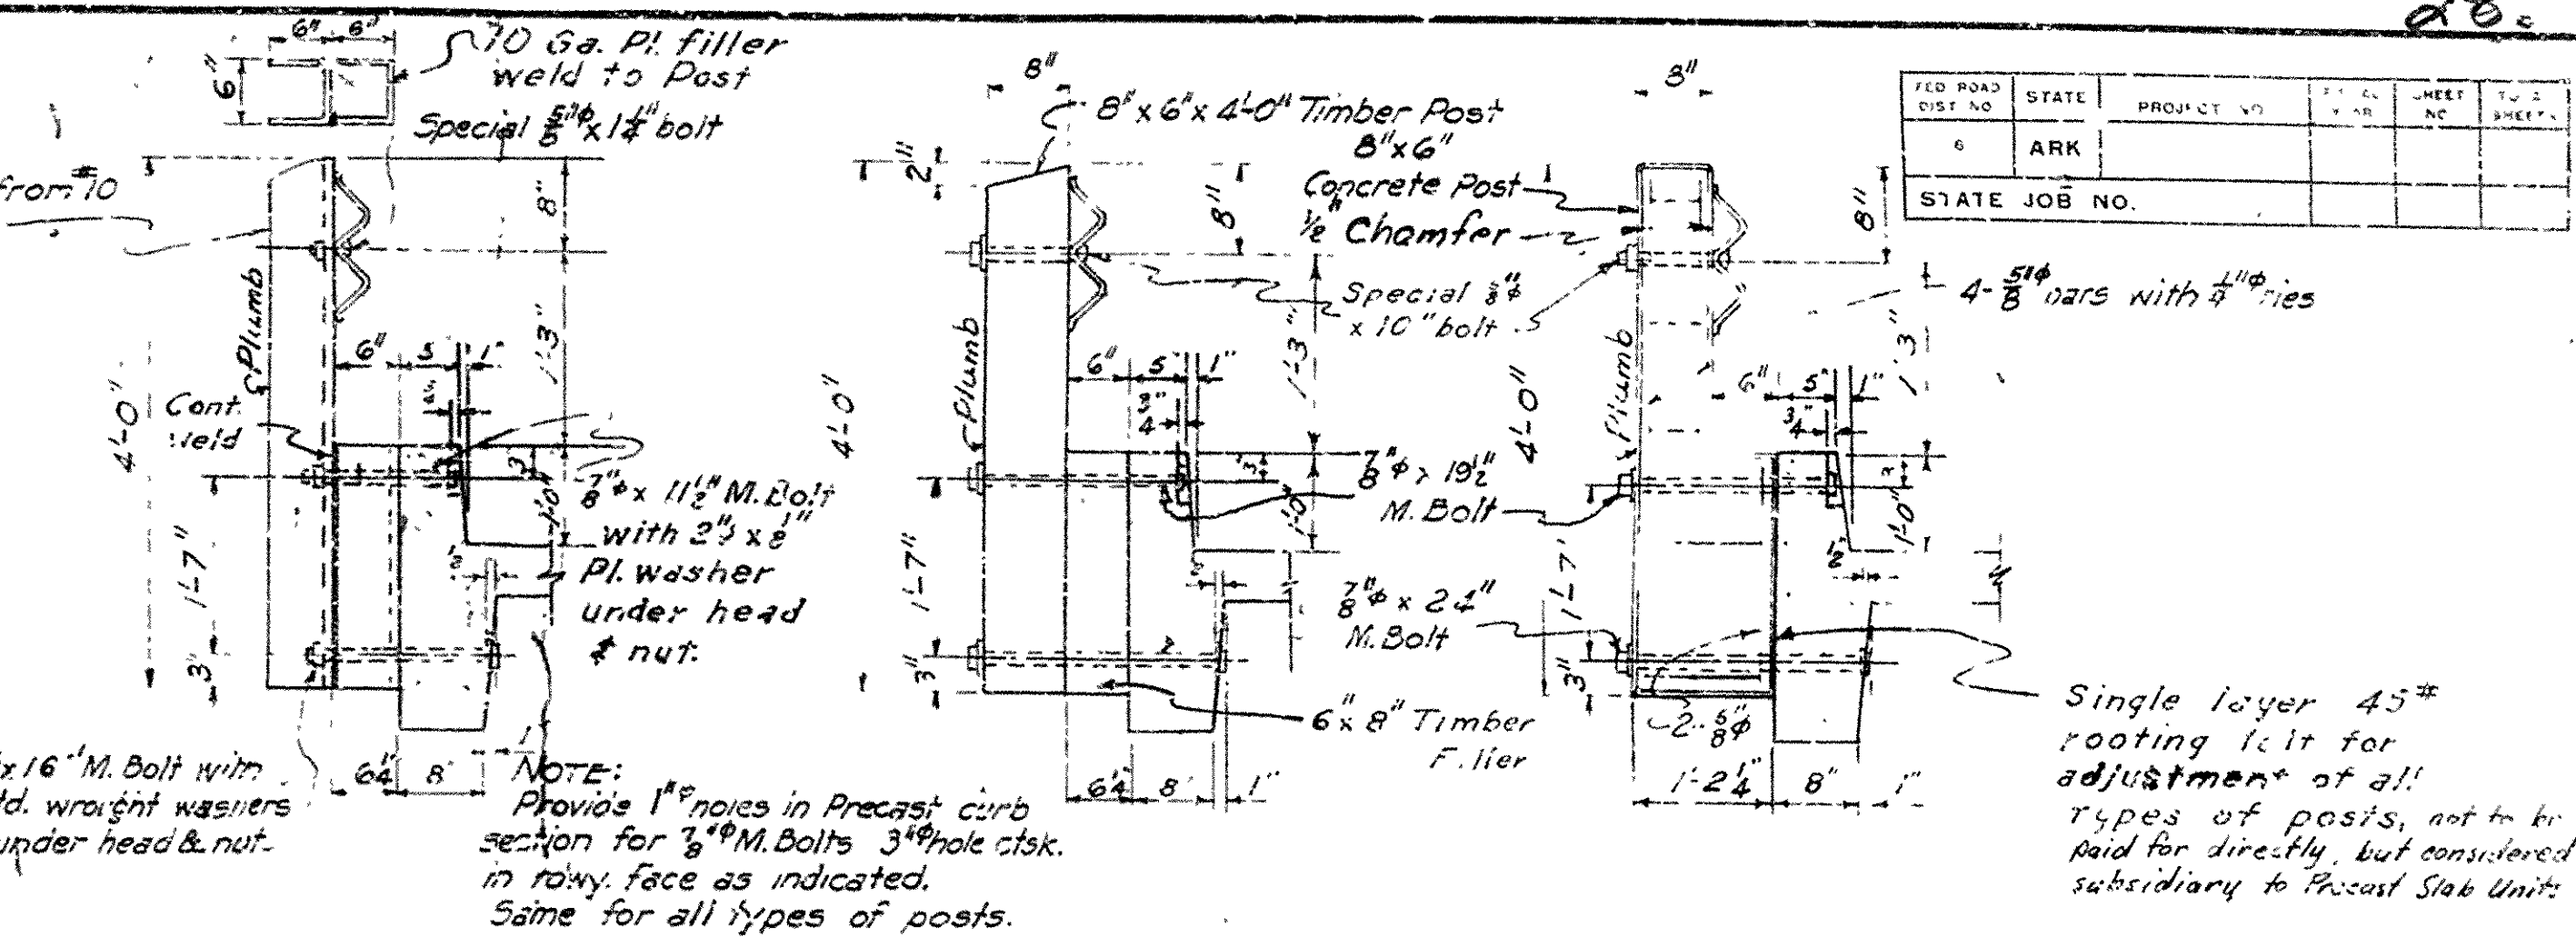 6" 6"
6"
10 Ga. Pl. filler
weld to Post
Special 5/8"φ x 1 1/4" bolt
from #10
8"
1'-3"
℄ Plumb
4'-0"
6" 5 1"
Cont.
weld
3"
1'-0"
7/8"φ x 11 1/2" M. Bolt
with 2"φ x 1/8"
Pl. washer
under head
& nut.
1/2
1'-7"
3"
x 16" M. Bolt with
td. wrought washers
under head & nut.
6 1/4" 8" 1"
NOTE:
Provide 1"φ holes in Precast curb
section for 7/8"φ M. Bolts 3"φ hole ctsk.
in rdwy. face as indicated.
Same for all types of posts.
8"
8" x 6" x 4'-0" Timber Post
2"
8"
℄ Plumb
1'-3"
4'-0"
6" 5" 1"
3/4"
3"
1'-0"
1'-7"
3"
6 1/4" 8" 1"
6" x 8" Timber
Filler
8" x 6"
Concrete Post
1/2" Chamfer
Special 5/8"φ
x 10" bolt
7/8"φ x 19 1/2"
M. Bolt
7/8"φ x 24"
M. Bolt
8"
8"
4-5/8"φ bars with 1/4"φ ties
Plumb
1'-3"
4'-0"
6" 5" 1"
3/4"
3
1'-0"
1/2"
1'-7"
3"
2-5/8"φ
1'-2 1/4" 8" 1"
Single layer 45#
roofing felt for
adjustment of all
types of posts, not to be
paid for directly, but considered
subsidiary to Precast Slab Units
FED ROAD DIST NO STATE PROJECT NO SHEET NO
6 ARK
STATE JOB NO.